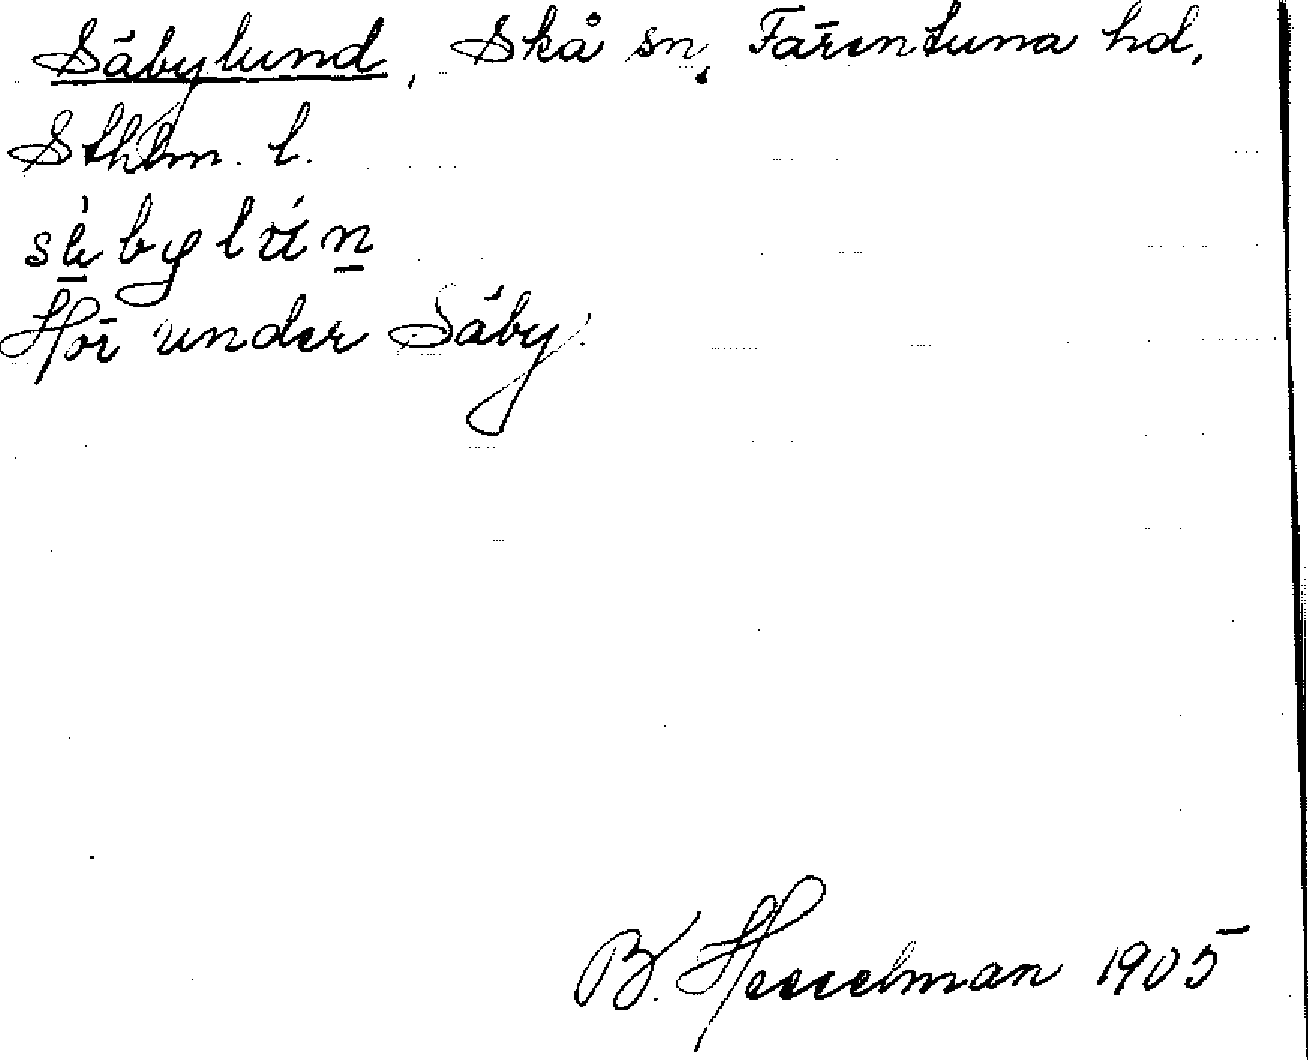 Säbylund, Skå sn, Färentuna hd,
Sthlm. l.
Hör under Säby.
B. Hesselman 1905